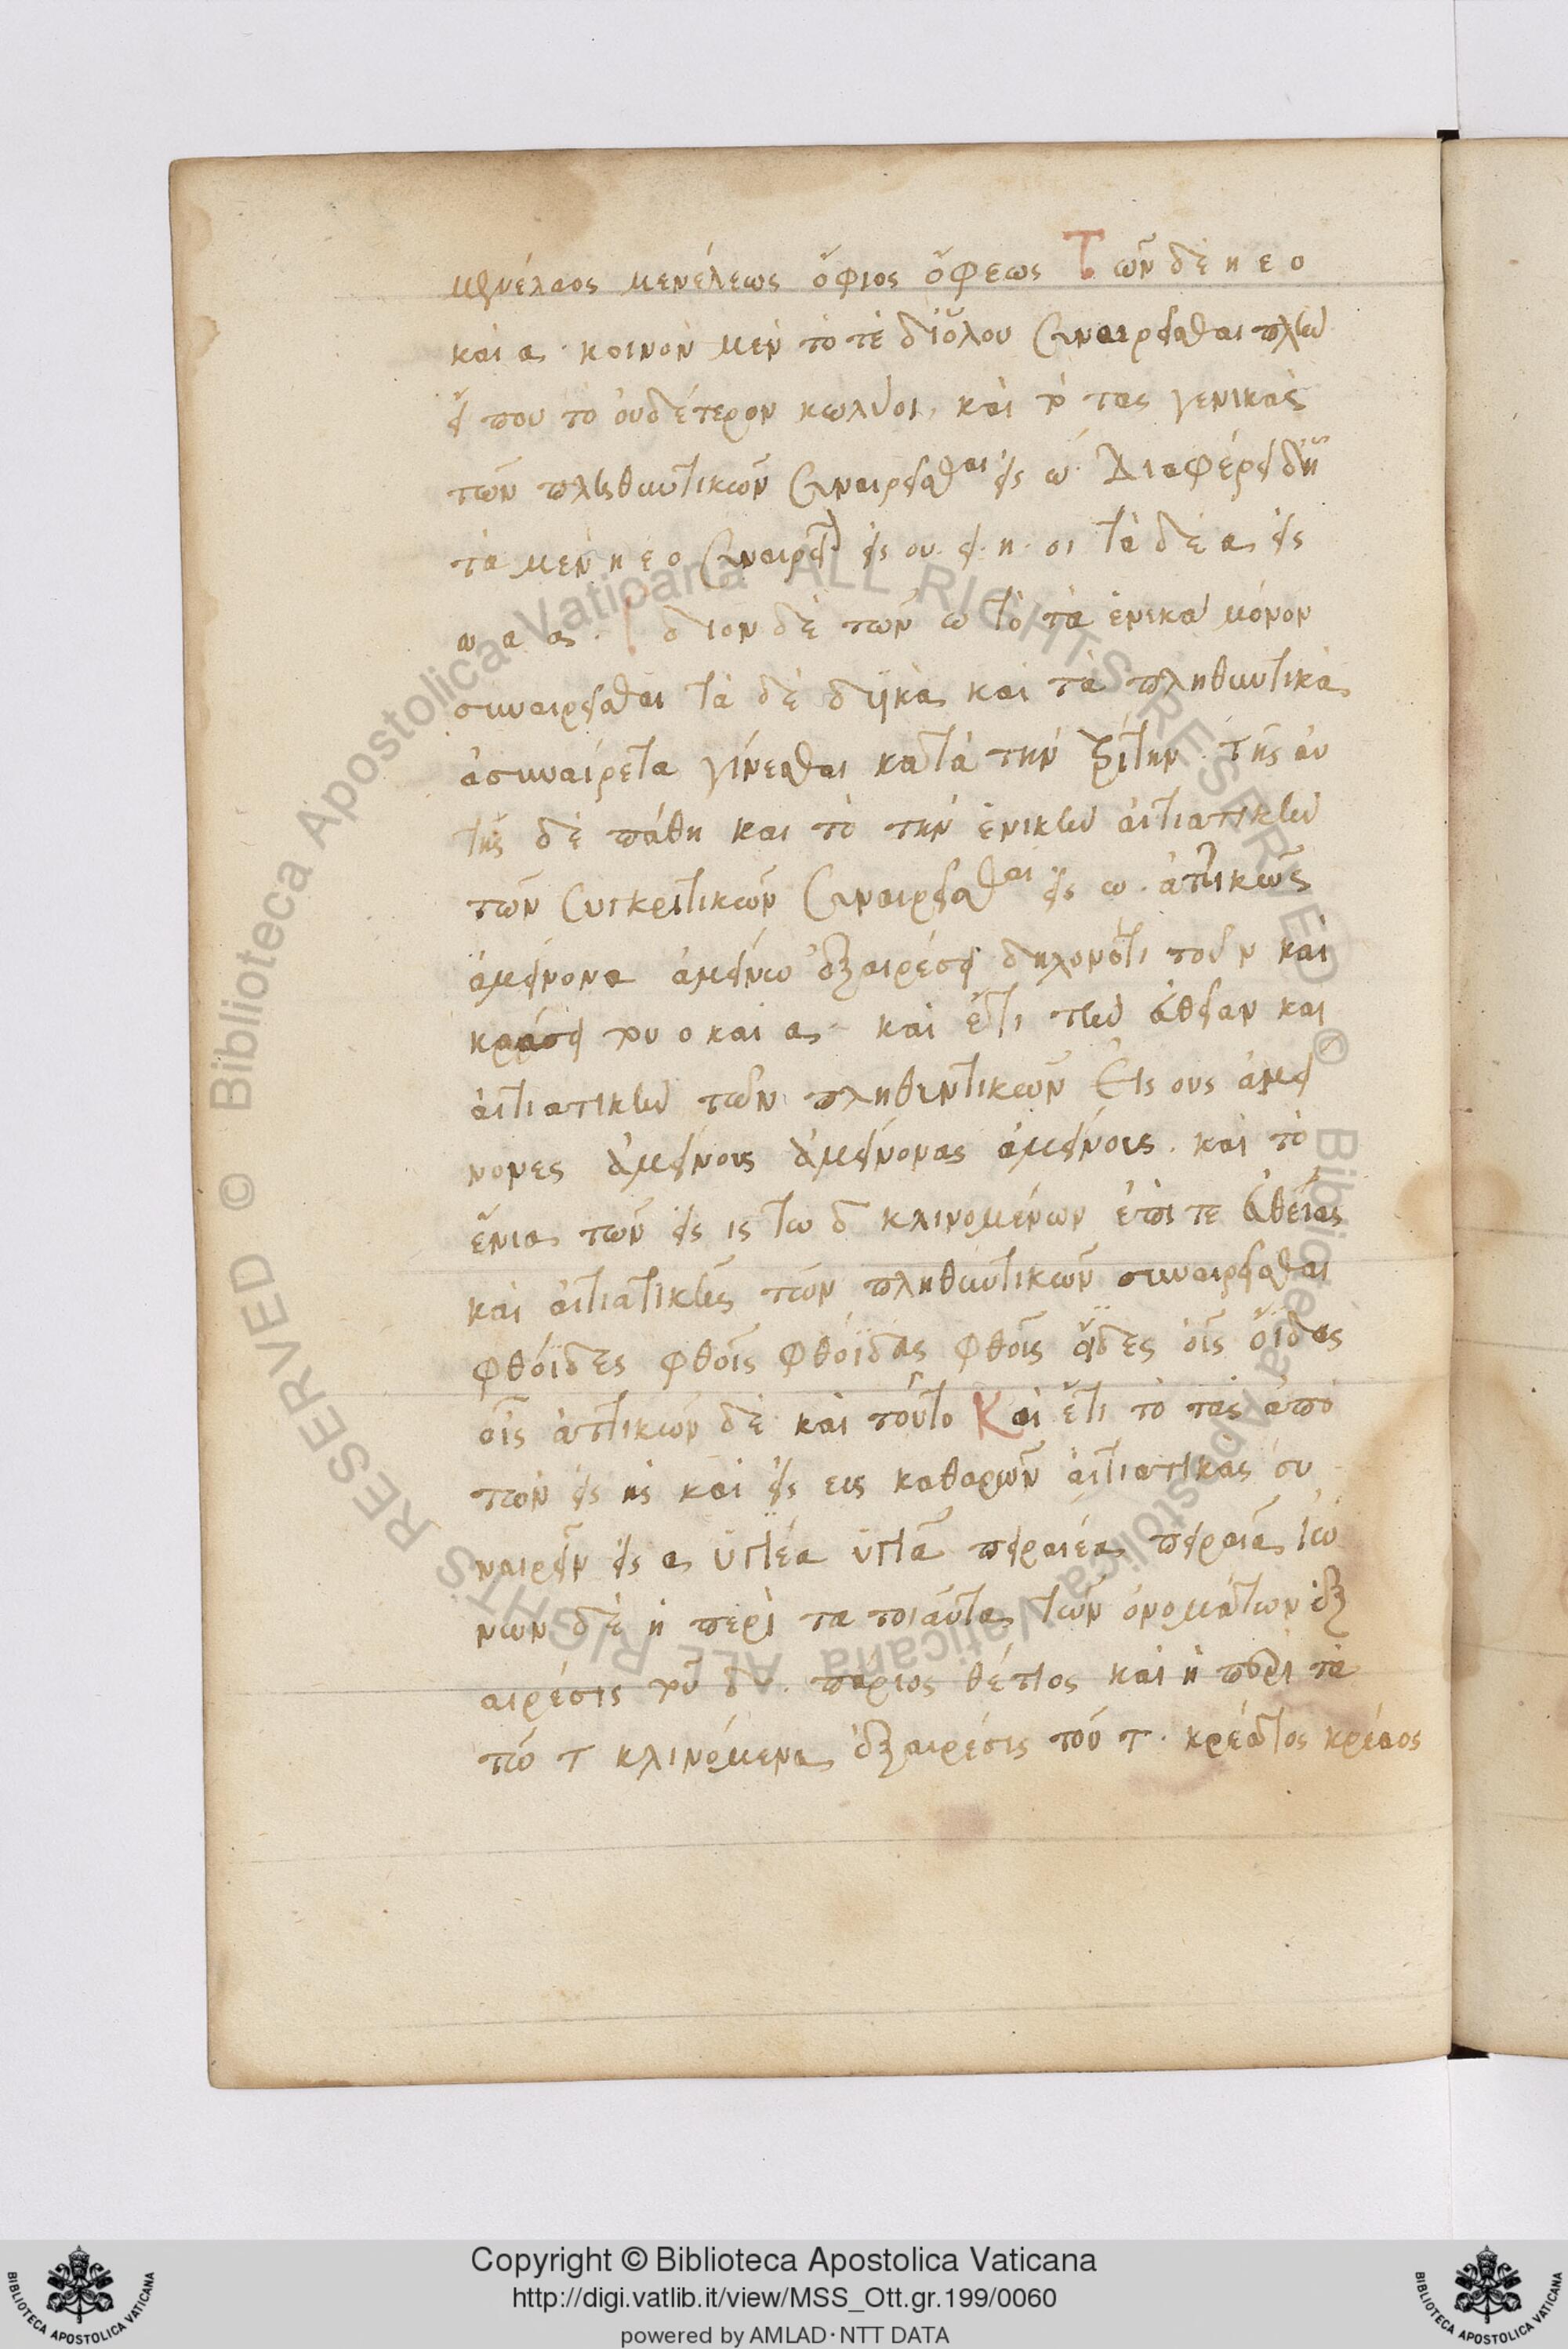 μενέλαος μενέλεως ὄφιος ὄφεως Τῶν δὲ η ε ο
καὶ α. κοινὸν μὲν τό τε διόλου συναιρεῖσθαι πλὴν
εἴ που τὸ οὐδέτερον κωλύοι, καὶ τὸ τὰς γενικὰς
τῶν πληθυντικῶν συναιρεῖσθαι εἰς ω. Διαφέρει δ' ἧ
τὰ μὲν η ε ο συναιρεῖται εἰς ου. ει. η. οι τὰ δὲ α εἰς
ω α ᾳ. Ἴδιον δὲ τῶν ω τὸ τὰ ἑνικὰ μόνον
συναιρεῖσθαι τὰ δὲ δυϊκὰ καὶ τὰ πληθυντικὰ
ἀσυναίρετα γίνεσθαι κατὰ τὴν τρίτην. τῆς αυ
τῆς δὲ πάθη καὶ τὸ τὴν ἑνικὴν αἰτιατικὴν
τῶν συγκριτικῶν συναιρεῖσθαι εἰς ω. ἀττικῶς
ἀμείνονα ἀμείνω ἐξαιρέσει δηλονότι τοῦ ν καὶ
κράσει του ο καὶ α. καὶ ἔτι τὴν εὐθεῖαν καὶ
αἰτιατικὴν τῶν πληθυντικῶν εἰς ους ἀμεί
νονες ἀμείνους ἀμείνονας ἀμείνους. καὶ τὸ
ἔνια τῶν εἰς ις τω δ κλινομένων ἐπί τε εὐθείας
καὶ αἰτιατικῆς τῶν πληθυντικῶν συναιρεῖσθαι
φθόϊδες φθοῖς φθόϊδας φθοῖς ὄϊδες οἶς ὄϊδας
οἶς ἀττικῶν δὲ καὶ τοῦτο Καὶ ἔτι τὸ τὰς ἀπὸ
τῶν εἰς ης καὶ εἰς ευς καθαρῶν αἰτιατικὰς συ
ναιρεῖν εἰς α ὑγιέα ὑγιᾶ πειραιέα πειραιᾶ Ἰώ
νων δὲ ἡ περὶ τὰ τοιαῦτα τῶν ὀνομάτων ἐξ
αιρέσις τοῦ δ. πάριος θέτιος καὶ ἡ περὶ τὰ
τῶ τ κλινόμενα ἐξαιρέσις τοῦ τ. κρέατος κρέαος
Copyright © Biblioteca Apostolica Vaticana
http://digi.vatlib.it/view/MSS_Ott.gr.199/0060
powered by AMLAD·NTT DATA